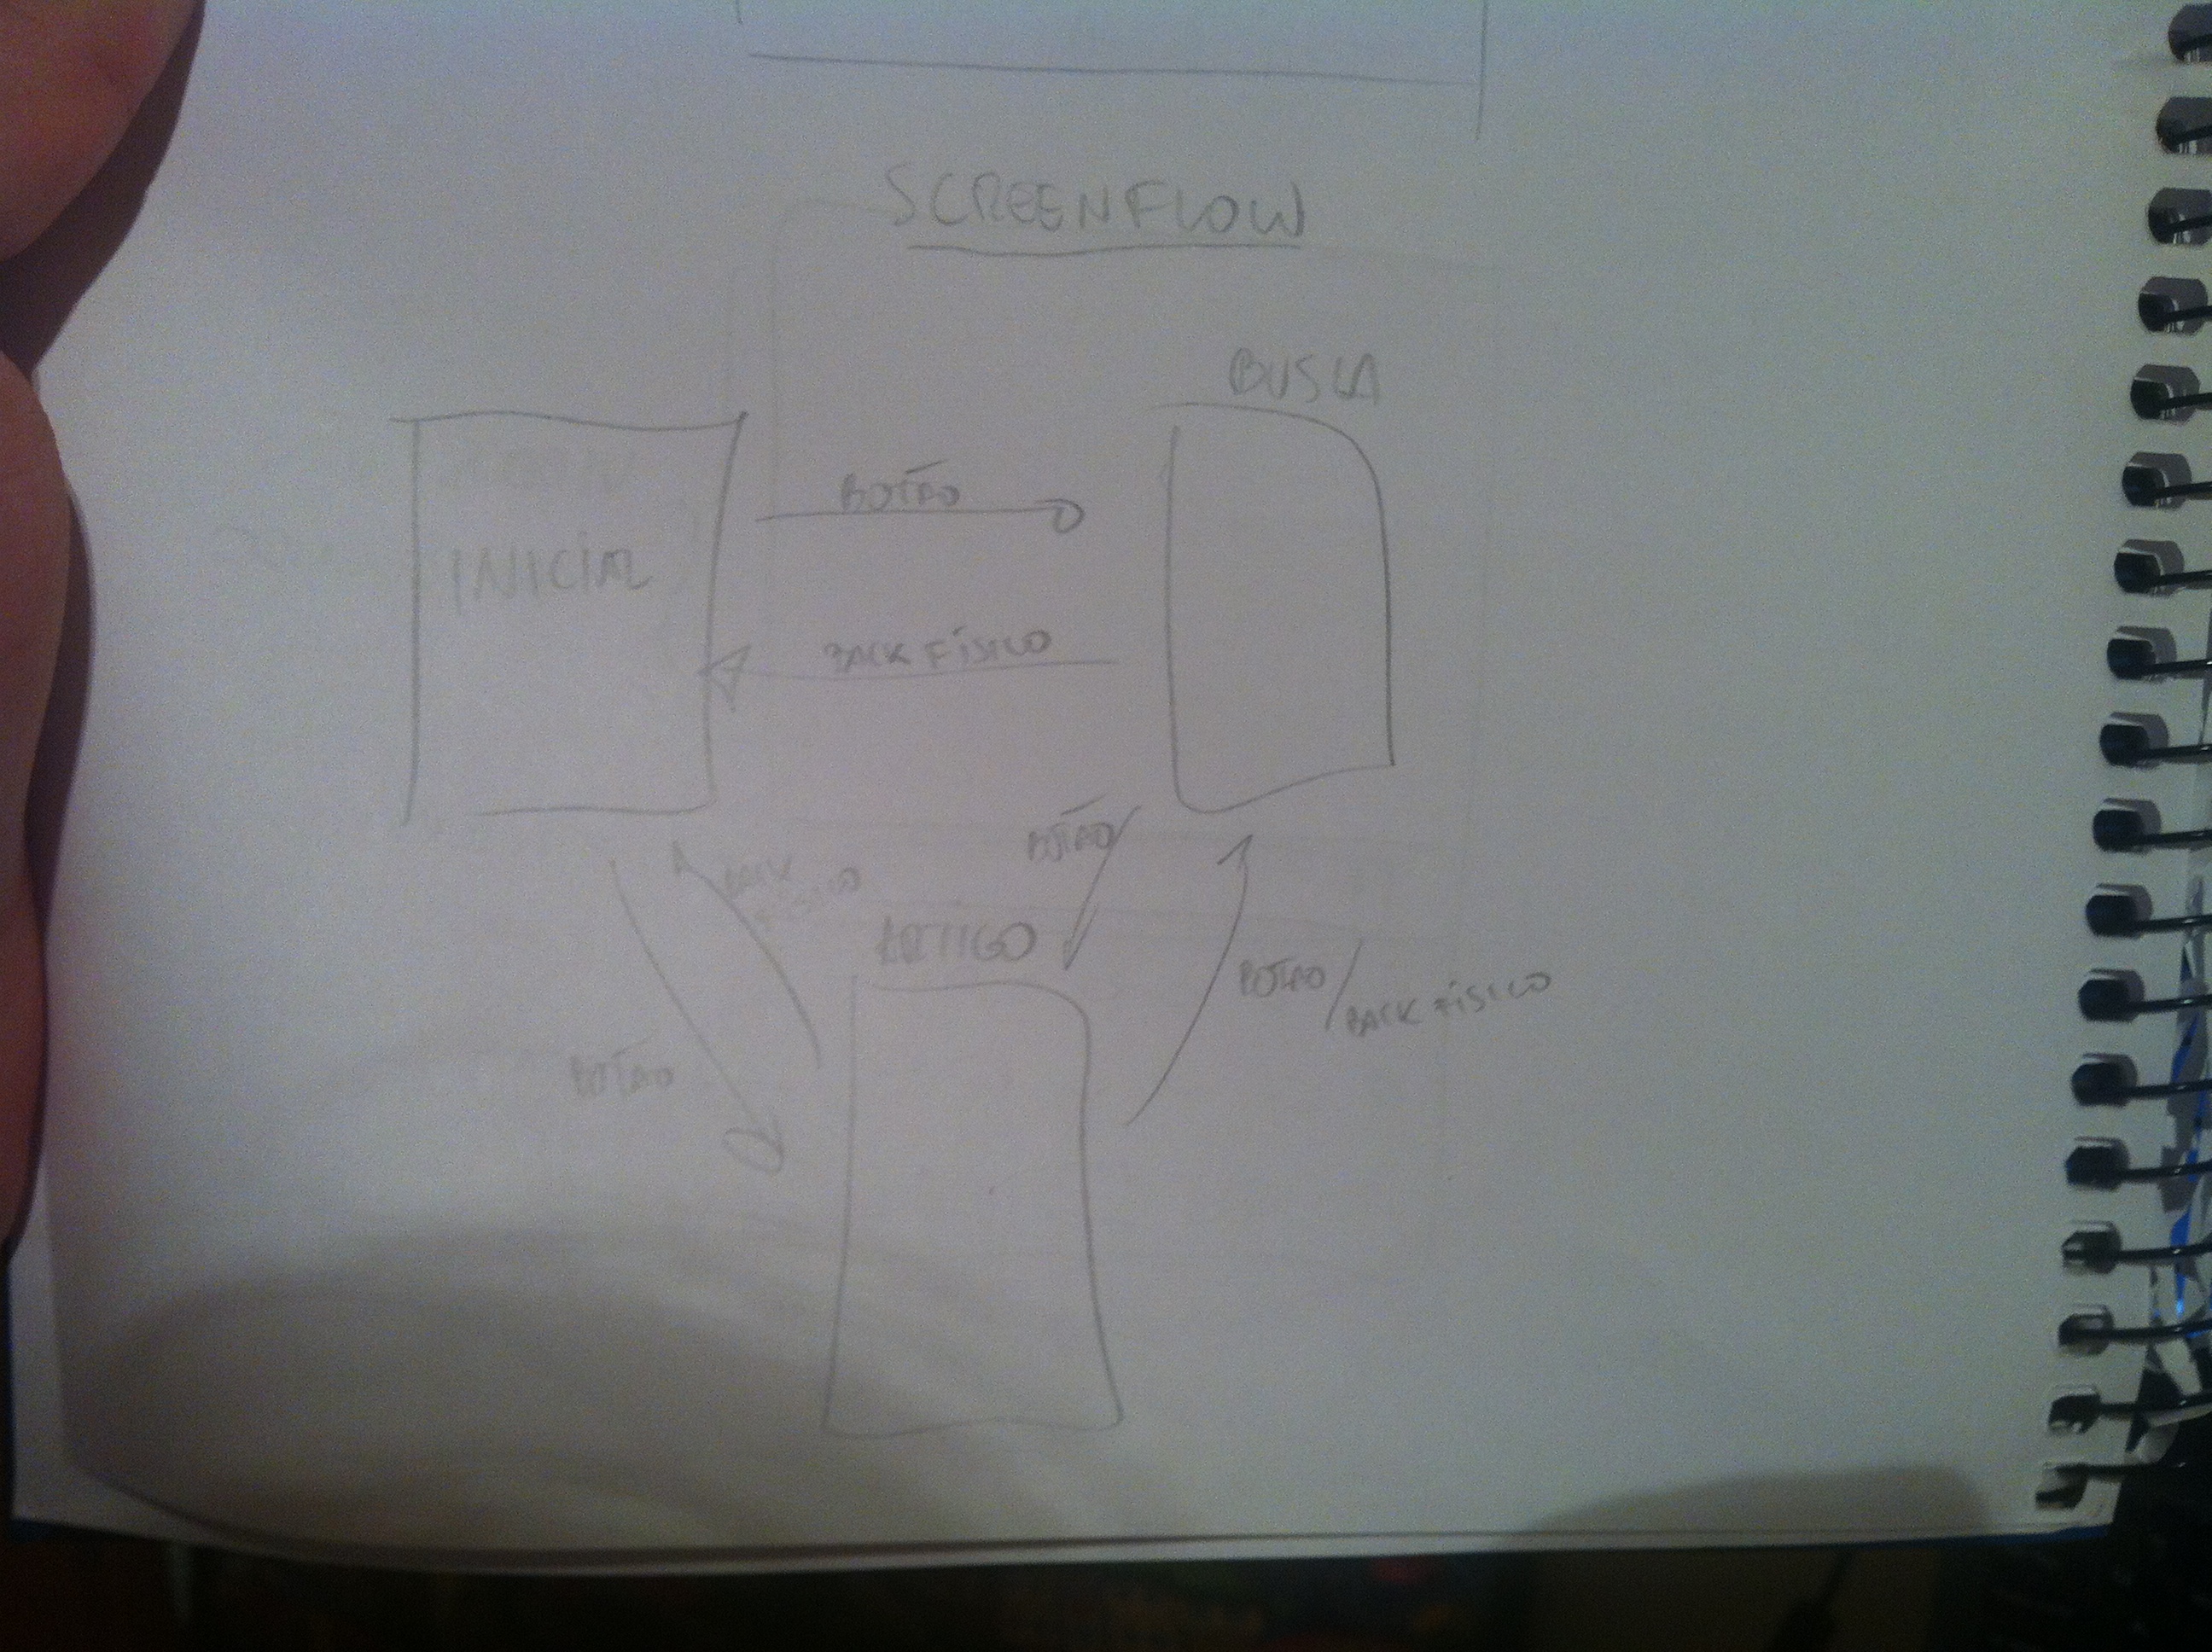 SCREENFLOW
BUSCA
BOTÃO
INICIAL
BACK FÍSICO
BOTÃO
BACK
FÍSICO
ARTIGO
BOTÃO/
BACK FÍSICO
BOTÃO